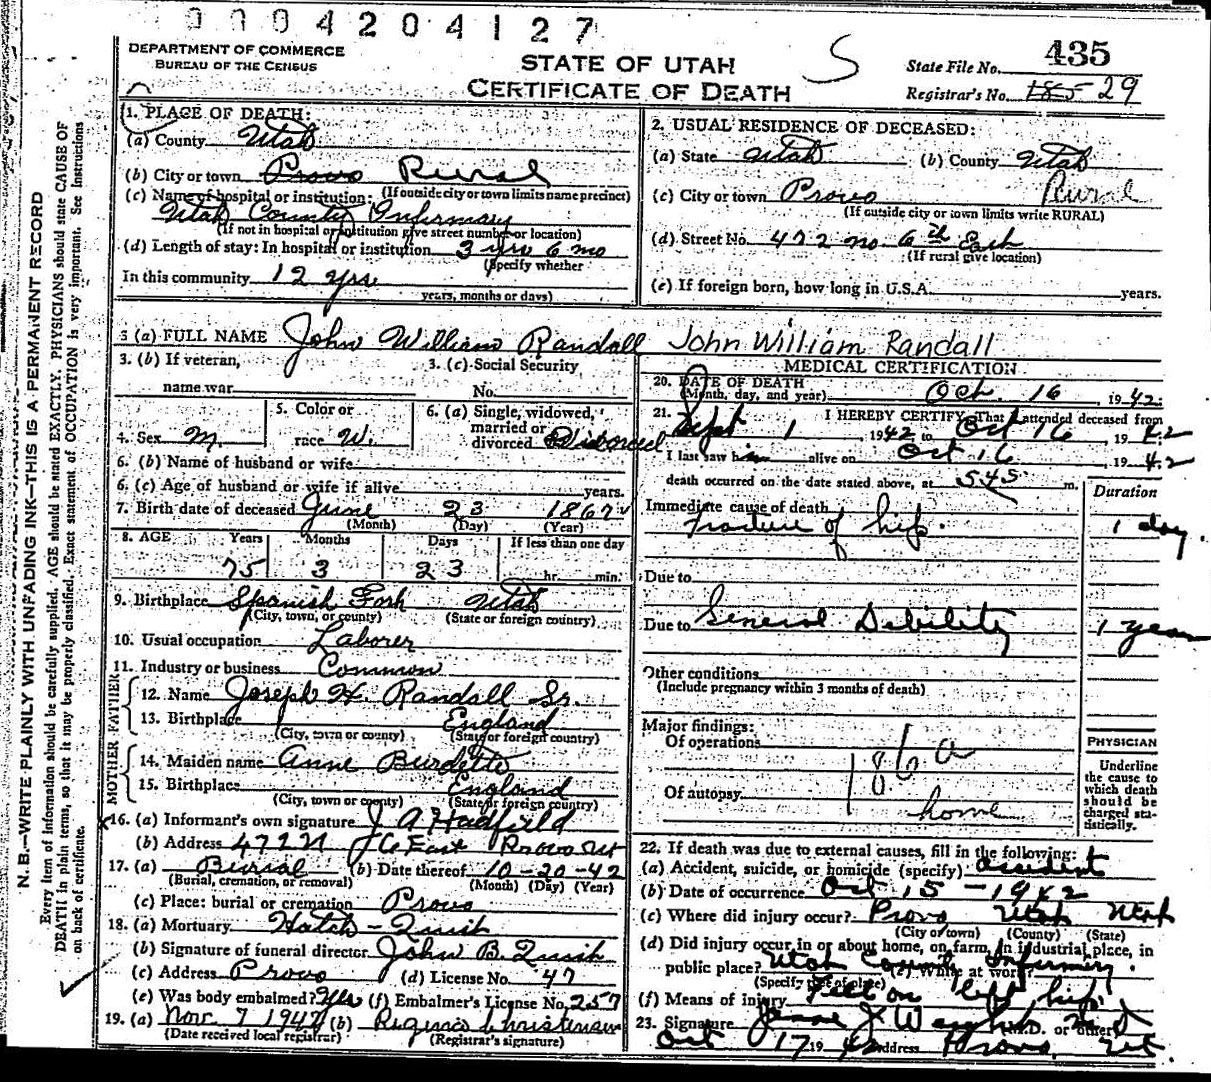 0004204127
DEPARTMENT OF COMMERCE
BUREAU OF THE CENSUS
STATE OF UTAH
CERTIFICATE OF DEATH
S
State File No. 435
Registrar's No. 185 29
N. B.—WRITE PLAINLY WITH UNFADING INK—THIS IS A PERMANENT RECORD
Every item of information should be carefully supplied. AGE should be stated EXACTLY. PHYSICIANS should state CAUSE OF
DEATH in plain terms, so that it may be properly classified. Exact statement of OCCUPATION is very important. See Instructions
on back of certificate.
1. PLACE OF DEATH:
(a) County Utah
(b) City or town Provo Rural
(If outside city or town limits name precinct)
(c) Name of hospital or institution:
Utah County Infirmary
(If not in hospital or institution give street number or location)
(d) Length of stay: In hospital or institution 3 yrs 6 mo
(Specify whether
In this community 12 yrs
years, months or days)
2. USUAL RESIDENCE OF DECEASED:
(a) State Utah (b) County Utah
(c) City or town Provo Rural
(If outside city or town limits write RURAL)
(d) Street No. 472 no 6th East
(If rural give location)
(e) If foreign born, how long in U.S.A. years.
3 (a) FULL NAME John William Randall John William Randall
3. (b) If veteran, name war
3. (c) Social Security No.
4. Sex M.
5. Color or race W.
6. (a) Single, widowed, married or divorced
6. (b) Name of husband or wife
6. (c) Age of husband or wife if alive years.
7. Birth date of deceased June 23 1867
(Month) (Day) (Year)
8. AGE Years Months Days If less than one day
75 3 23 hr. min.
9. Birthplace Spanish Fork Utah
(City, town, or county) (State or foreign country)
10. Usual occupation Laborer
11. Industry or business Common
FATHER
12. Name Joseph H. Randall Sr.
13. Birthplace England
(City, town or county) (State or foreign country)
MOTHER
14. Maiden name Anne Burdette
15. Birthplace England
(City, town or county) (State or foreign country)
16. (a) Informant's own signature J A Hadfield
(b) Address 472 N 6 East Provo Ut
17. (a) Burial (b) Date thereof 10-20-42
(Burial, cremation, or removal) (Month) (Day) (Year)
(c) Place: burial or cremation Provo
18. (a) Mortuary
(b) Signature of funeral director John B.
(c) Address Provo (d) License No. 47
(e) Was body embalmed? Yes (f) Embalmer's License No. 257
19. (a) Nov. 7 1942 (b) Christensen
(Date received local registrar) (Registrar's signature)
MEDICAL CERTIFICATION
20. DATE OF DEATH
(Month, day, and year) Oct. 16, 1942
21. I HEREBY CERTIFY, That I attended deceased from
Sept 1 1942 to Oct 16, 1942
I last saw him alive on Oct 16, 1942
death occurred on the date stated above, at 545 m.
Duration
Immediate cause of death
fracture of hip. 1 day.
Due to
Due to General Debility 1 year
Other conditions
(Include pregnancy within 3 months of death)
Major findings:
Of operations
186a
Of autopsy
home
PHYSICIAN
Underline
the cause to
which death
should be
charged sta-
tistically.
22. If death was due to external causes, fill in the following:
(a) Accident, suicide, or homicide (specify) accident
(b) Date of occurrence Oct 15 - 1942
(c) Where did injury occur? Provo Utah Utah
(City or town) (County) (State)
(d) Did injury occur in or about home, on farm, in industrial place, in
public place? Utah County Infirmery.
(Specify type of place) (e) While at work?
(f) Means of injury Fell on left hip
23. Signature M.D. or other
Oct 17 1942 Address Provo, Ut.